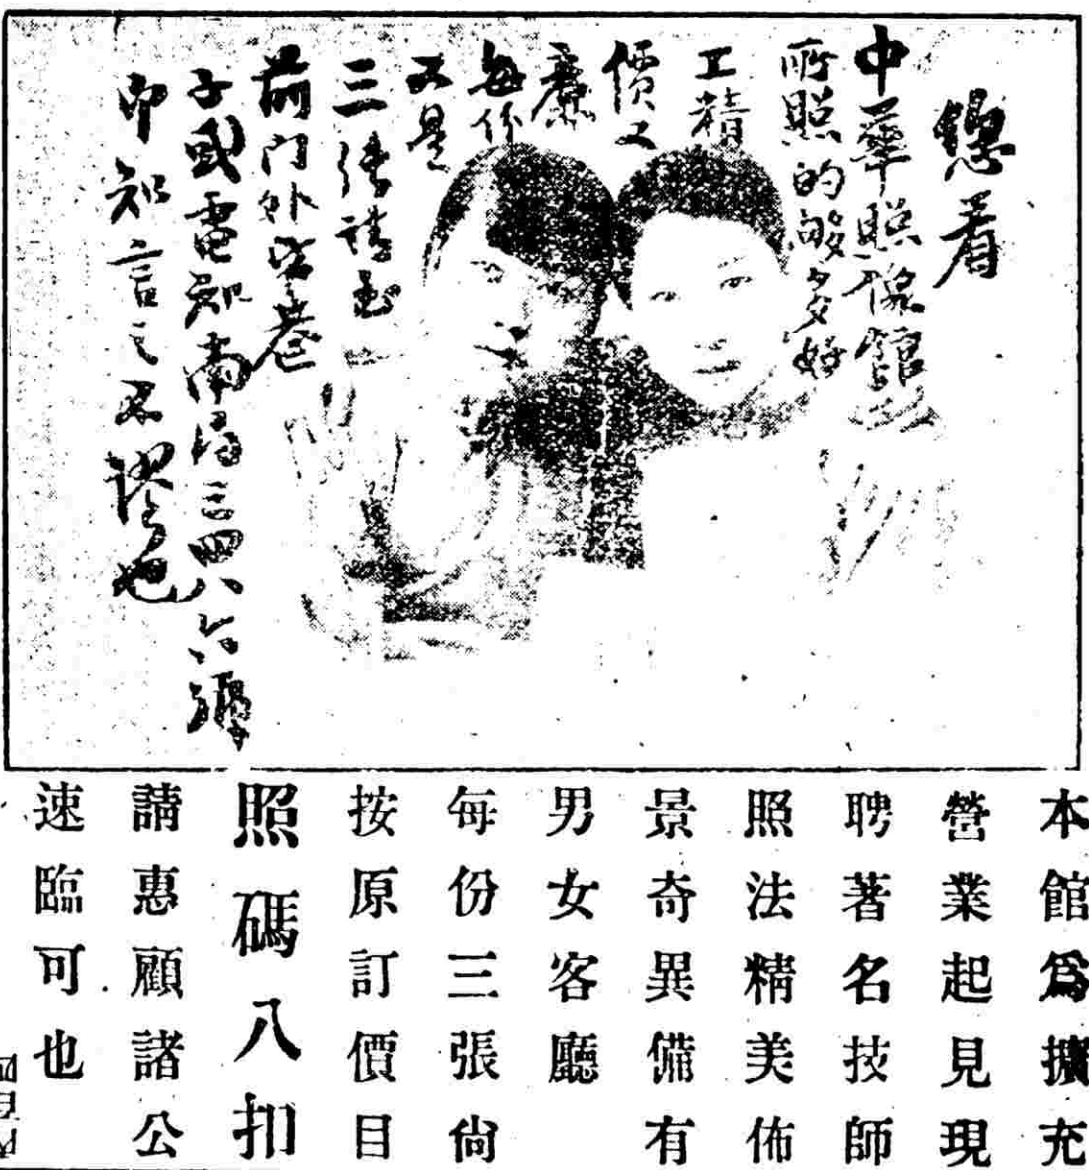 您看
中華照像館
所照的够多好
工精
價又
廉
每份
又是
三張請到
前门外巷
子或電知南局三四八六號
即知言之不謬也
本館爲擴充
營業起見現
聘著名技師
照法精美佈
景奇異備有
男女客廳
每份三張尙
按原訂價目
照碼八扣
請惠顧諸公
速臨可也